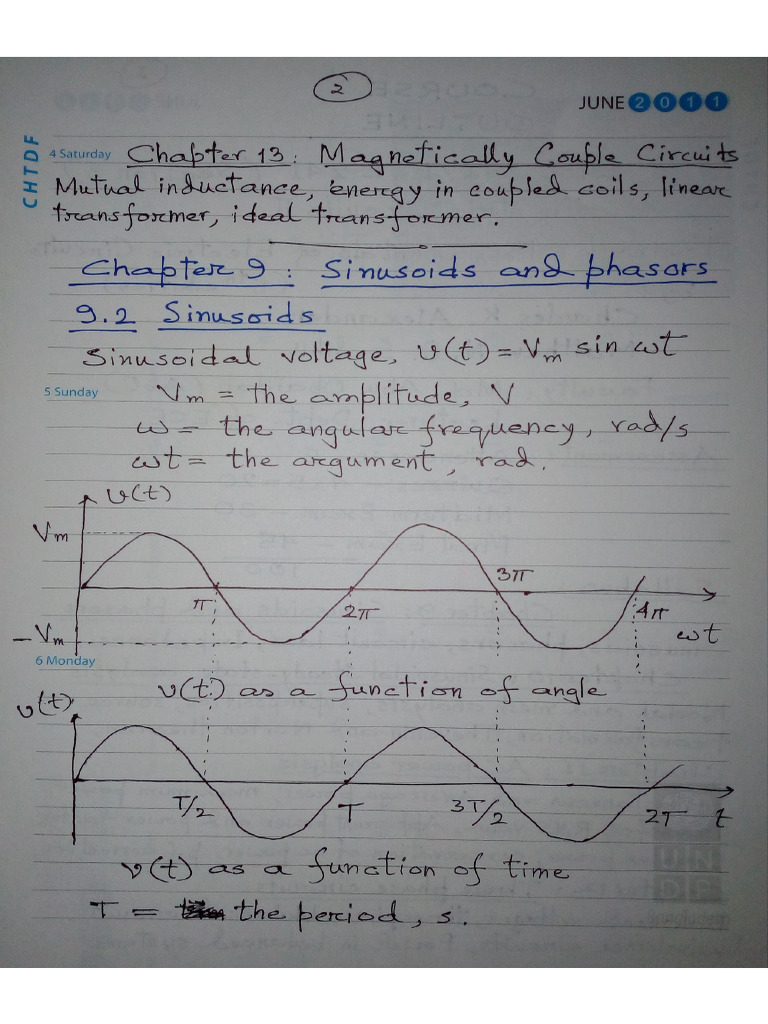 2
JUNE 2011
CHTDF
4 Saturday Chapter 13: Magnetically Couple Circuits
Mutual inductance, energy in coupled coils, linear
transformer, ideal transformer.
Chapter 9 : Sinusoids and phasors
9.2 Sinusoids
Sinusoidal voltage, v(t) = Vm sin ωt
5 Sunday Vm = the amplitude, V
ω = the angular frequency, rad/s
ωt = the argument, rad.
v(t)
Vm
3π
π 2π 4π
-Vm ωt
6 Monday
v(t) as a function of angle
v(t)
T/2 T 3T/2 2T t
v(t) as a function of time
T = the period, s.